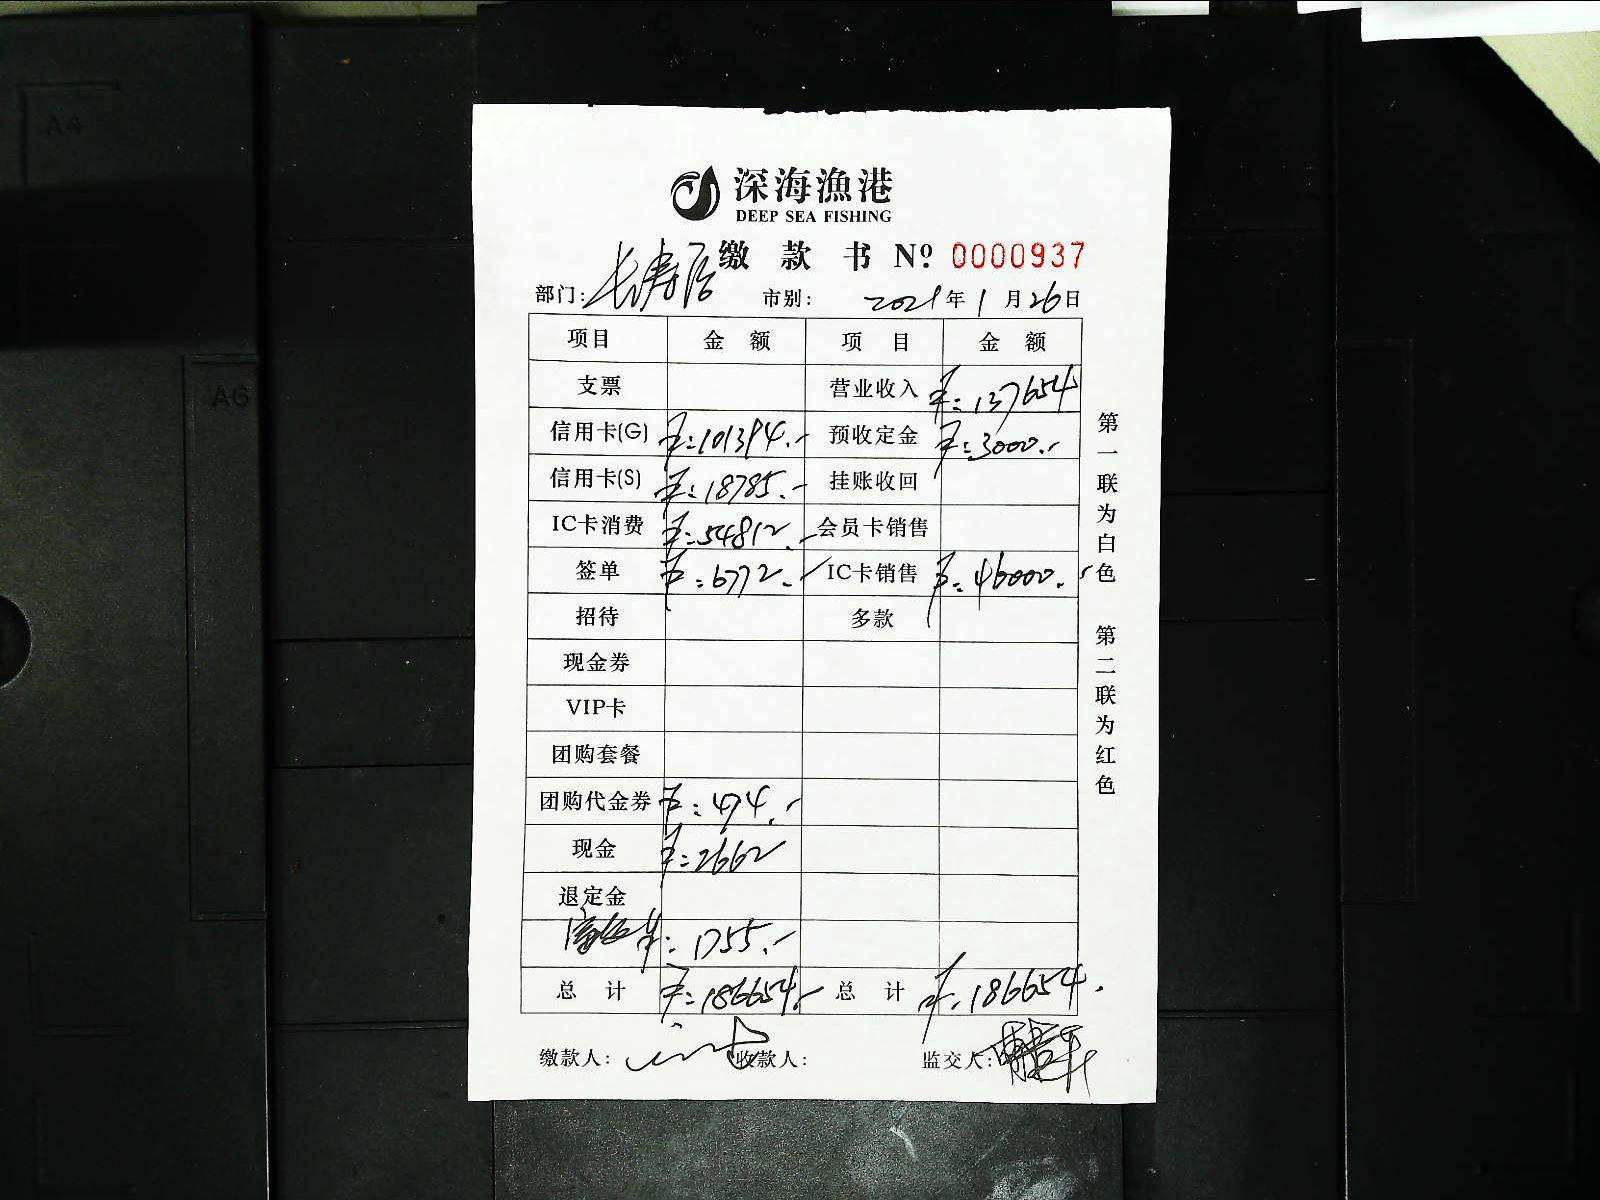 A4
A6
深海渔港
DEEP SEA FISHING
缴款书 Nº 0000937
部门: 长寿店 市别: 2021年1月26日
项目 金额 项目 金额
支票 营业收入 ¥:137654
信用卡(G) ¥:101394.- 预收定金 ¥:3000.-
信用卡(S) ¥:18785.- 挂账收回
IC卡消费 ¥:54812.- 会员卡销售
签单 ¥:6772.- IC卡销售 ¥:46000.-
招待 多款
现金券
VIP卡
团购套餐
团购代金券 ¥:474.-
现金 ¥:2662
退定金
¥:1755.-
总计 ¥:186654.- 总计 ¥:186654.
缴款人: 收款人: 监交人:
第一联为白色 第二联为红色